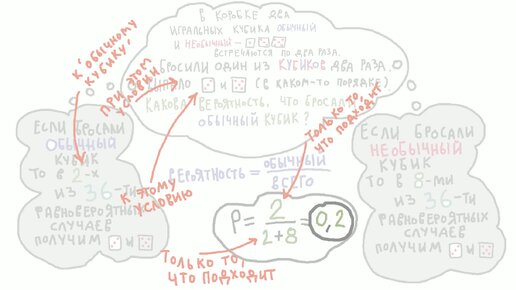 В КОРОБКЕ ДВА
ИГРАЛЬНЫХ КУБИКА ОБЫЧНЫЙ
И НЕОБЫЧНЫЙ —
ВСТРЕЧАЮТСЯ ПО ДВА РАЗА.
БРОСИЛИ ОДИН ИЗ КУБИКОВ ДВА РАЗА
ВЫПАЛО И (В КАКОМ-ТО ПОРЯДКЕ)
КАКОВА ВЕРОЯТНОСТЬ, ЧТО БРОСАЛИ
ОБЫЧНЫЙ КУБИК?
К "ОБЫЧНОМУ
КУБИКУ"
ПРИ ЭТОМ
УСЛОВИИ
К ЭТОМУ
УСЛОВИЮ
ТОЛЬКО ТО,
ЧТО ПОДХОДИТ
ЕСЛИ БРОСАЛИ
ОБЫЧНЫЙ
КУБИК
ТО В 2-Х
ИЗ 36-ТИ
РАВНОВЕРОЯТНЫХ
СЛУЧАЕВ
ПОЛУЧИМ И
ВЕРОЯТНОСТЬ = ОБЫЧНЫЙ
ВСЕГО
P = 2
2+8 = 0,2
ТОЛЬКО ТО,
ЧТО ПОДХОДИТ
ЕСЛИ БРОСАЛИ
НЕОБЫЧНЫЙ
КУБИК
ТО В 8-МИ
ИЗ 36-ТИ
РАВНОВЕРОЯТНЫХ
СЛУЧАЕВ
ПОЛУЧИМ И